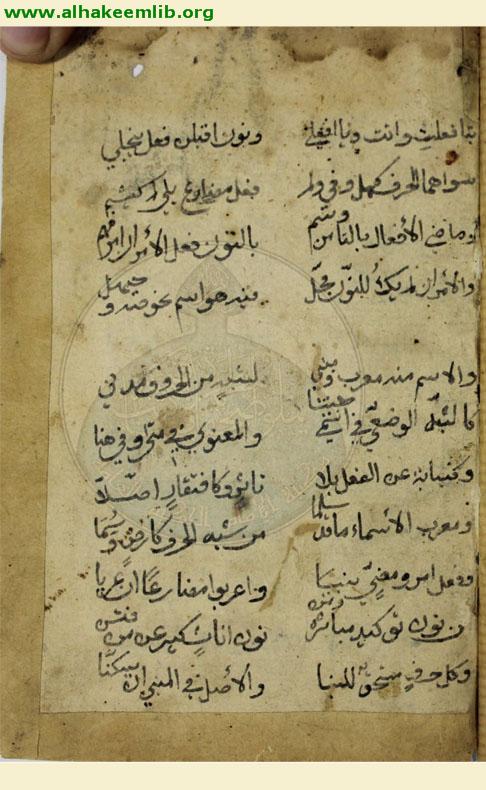 www.alhakeemlib.org
بتا فعلت وانت ويا افعلي ونون اقبلن فعل ينجلي
سواهما الحرف كهل وفي ولم فعل مضارع يلي لم كيشم
وماضي الأفعال بالتا مز وسم بالنون فعل الأمر ان امر فهم
والامر ان لم يك للنون محل فيه هو اسم نحو صه وحيهل
والاسم منه معرب ومبني لشبه من الحروف مدني
كالشبه الوضعي في اسمي جئتنا والمعنوي في متى وفي هنا
وكنيابة عن الفعل بلا تاثر وكافتقار اصلا
ومعرب الأسماء ما قد سلما من شبه الحرف كارض وسما
وفعل امر ومضي بنيا واعربوا مضارعا ان عريا
من نون توكيد مباشر ومن نون اناث كيرعن من فتن
وكل حرف مستحق للبنا والأصل في المبني ان يسكنا